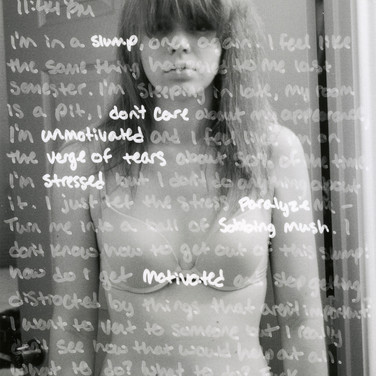 11:44 PM
I'm in a slump, once again. I feel like
the same thing happened to me last
semester. I'm sleeping in late, my room
is a pit, I don't care about my appearance,
I'm unmotivated and I feel like I'm on
the verge of tears about 50% of the time.
I'm stressed but I don't do anything about
it. I just let the stress paralyze me -
Turn me into a ball of sobbing mush. I
don't know how to get out of this slump:
how do I get motivated and stop getting
distracted by things that aren't important?
I want to vent to someone but I really
don't see how that would help at all.
What to do? What to do?